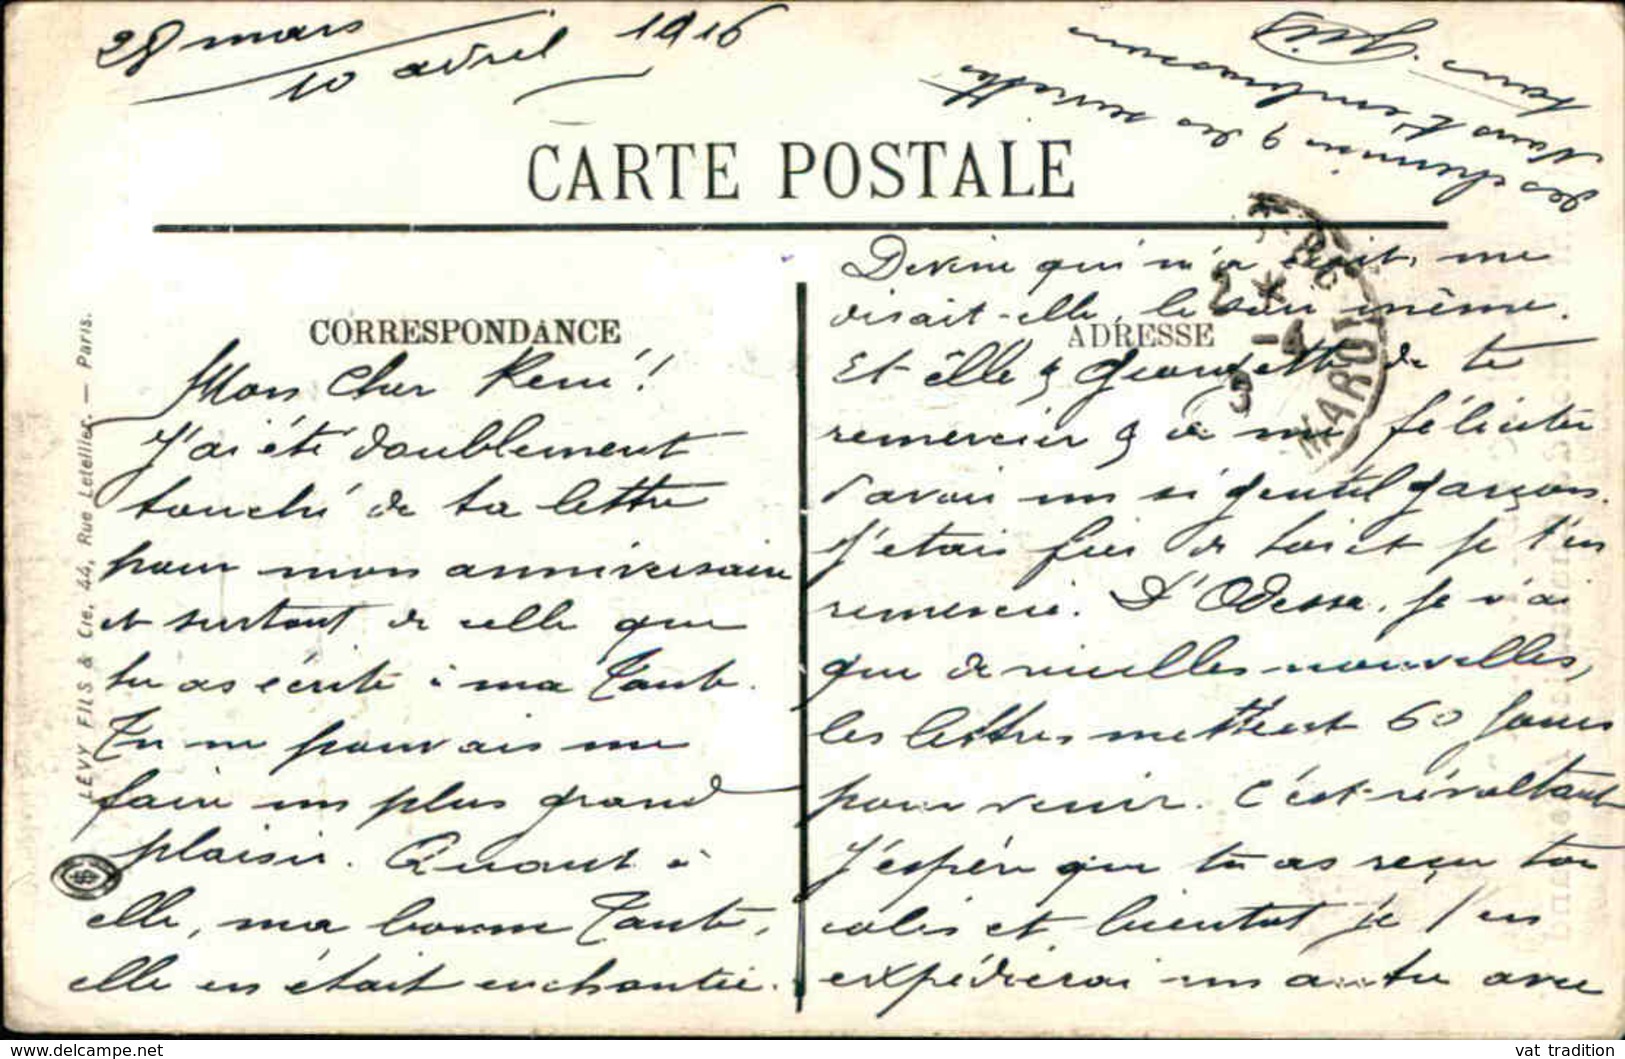 28 mars
10 avril 1916
CARTE POSTALE
CORRESPONDANCE
Mon Cher René!
J'ai été doublement
touché de ta lettre
pour mon anniversaire
et surtout de celle que
tu as écrite à ma Tante.
Tu ne pouvais me
faire un plus grand
plaisir. Quant à
elle, ma bonne Tante,
elle en était enchantée.
ADRESSE
Devine qui m'a écrit, me
disait-elle, le soir même.
Et elle & Georgette de te
remercier & de me féliciter
d'avoir un si gentil garçon.
J'etais fier de toi et je t'en
remercie. D'Odessa, je n'ai
que de vieilles nouvelles,
les lettres mettent 60 jours
pour venir. C'est révoltant
J'espère que tu as reçu ton
colis et bientot je t'en
expédierai un autre avec
des chemises & des serviettes
Nous t'embrassons
tous.
MAROC
LÉVY FILS & Cie, 44, Rue Letellier. — Paris.
delcampe.net
vat_tradition